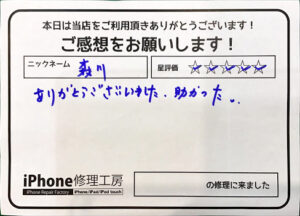 本日は当店をご利用頂きありがとうございます！
ご感想をお願いします！
ニックネーム 森川
星評価 ☆☆☆☆☆
ありがとうございました、助かった。
iPhone修理工房
iPhone Repair Factory iPhone/iPad/iPod touch
の修理に来ました